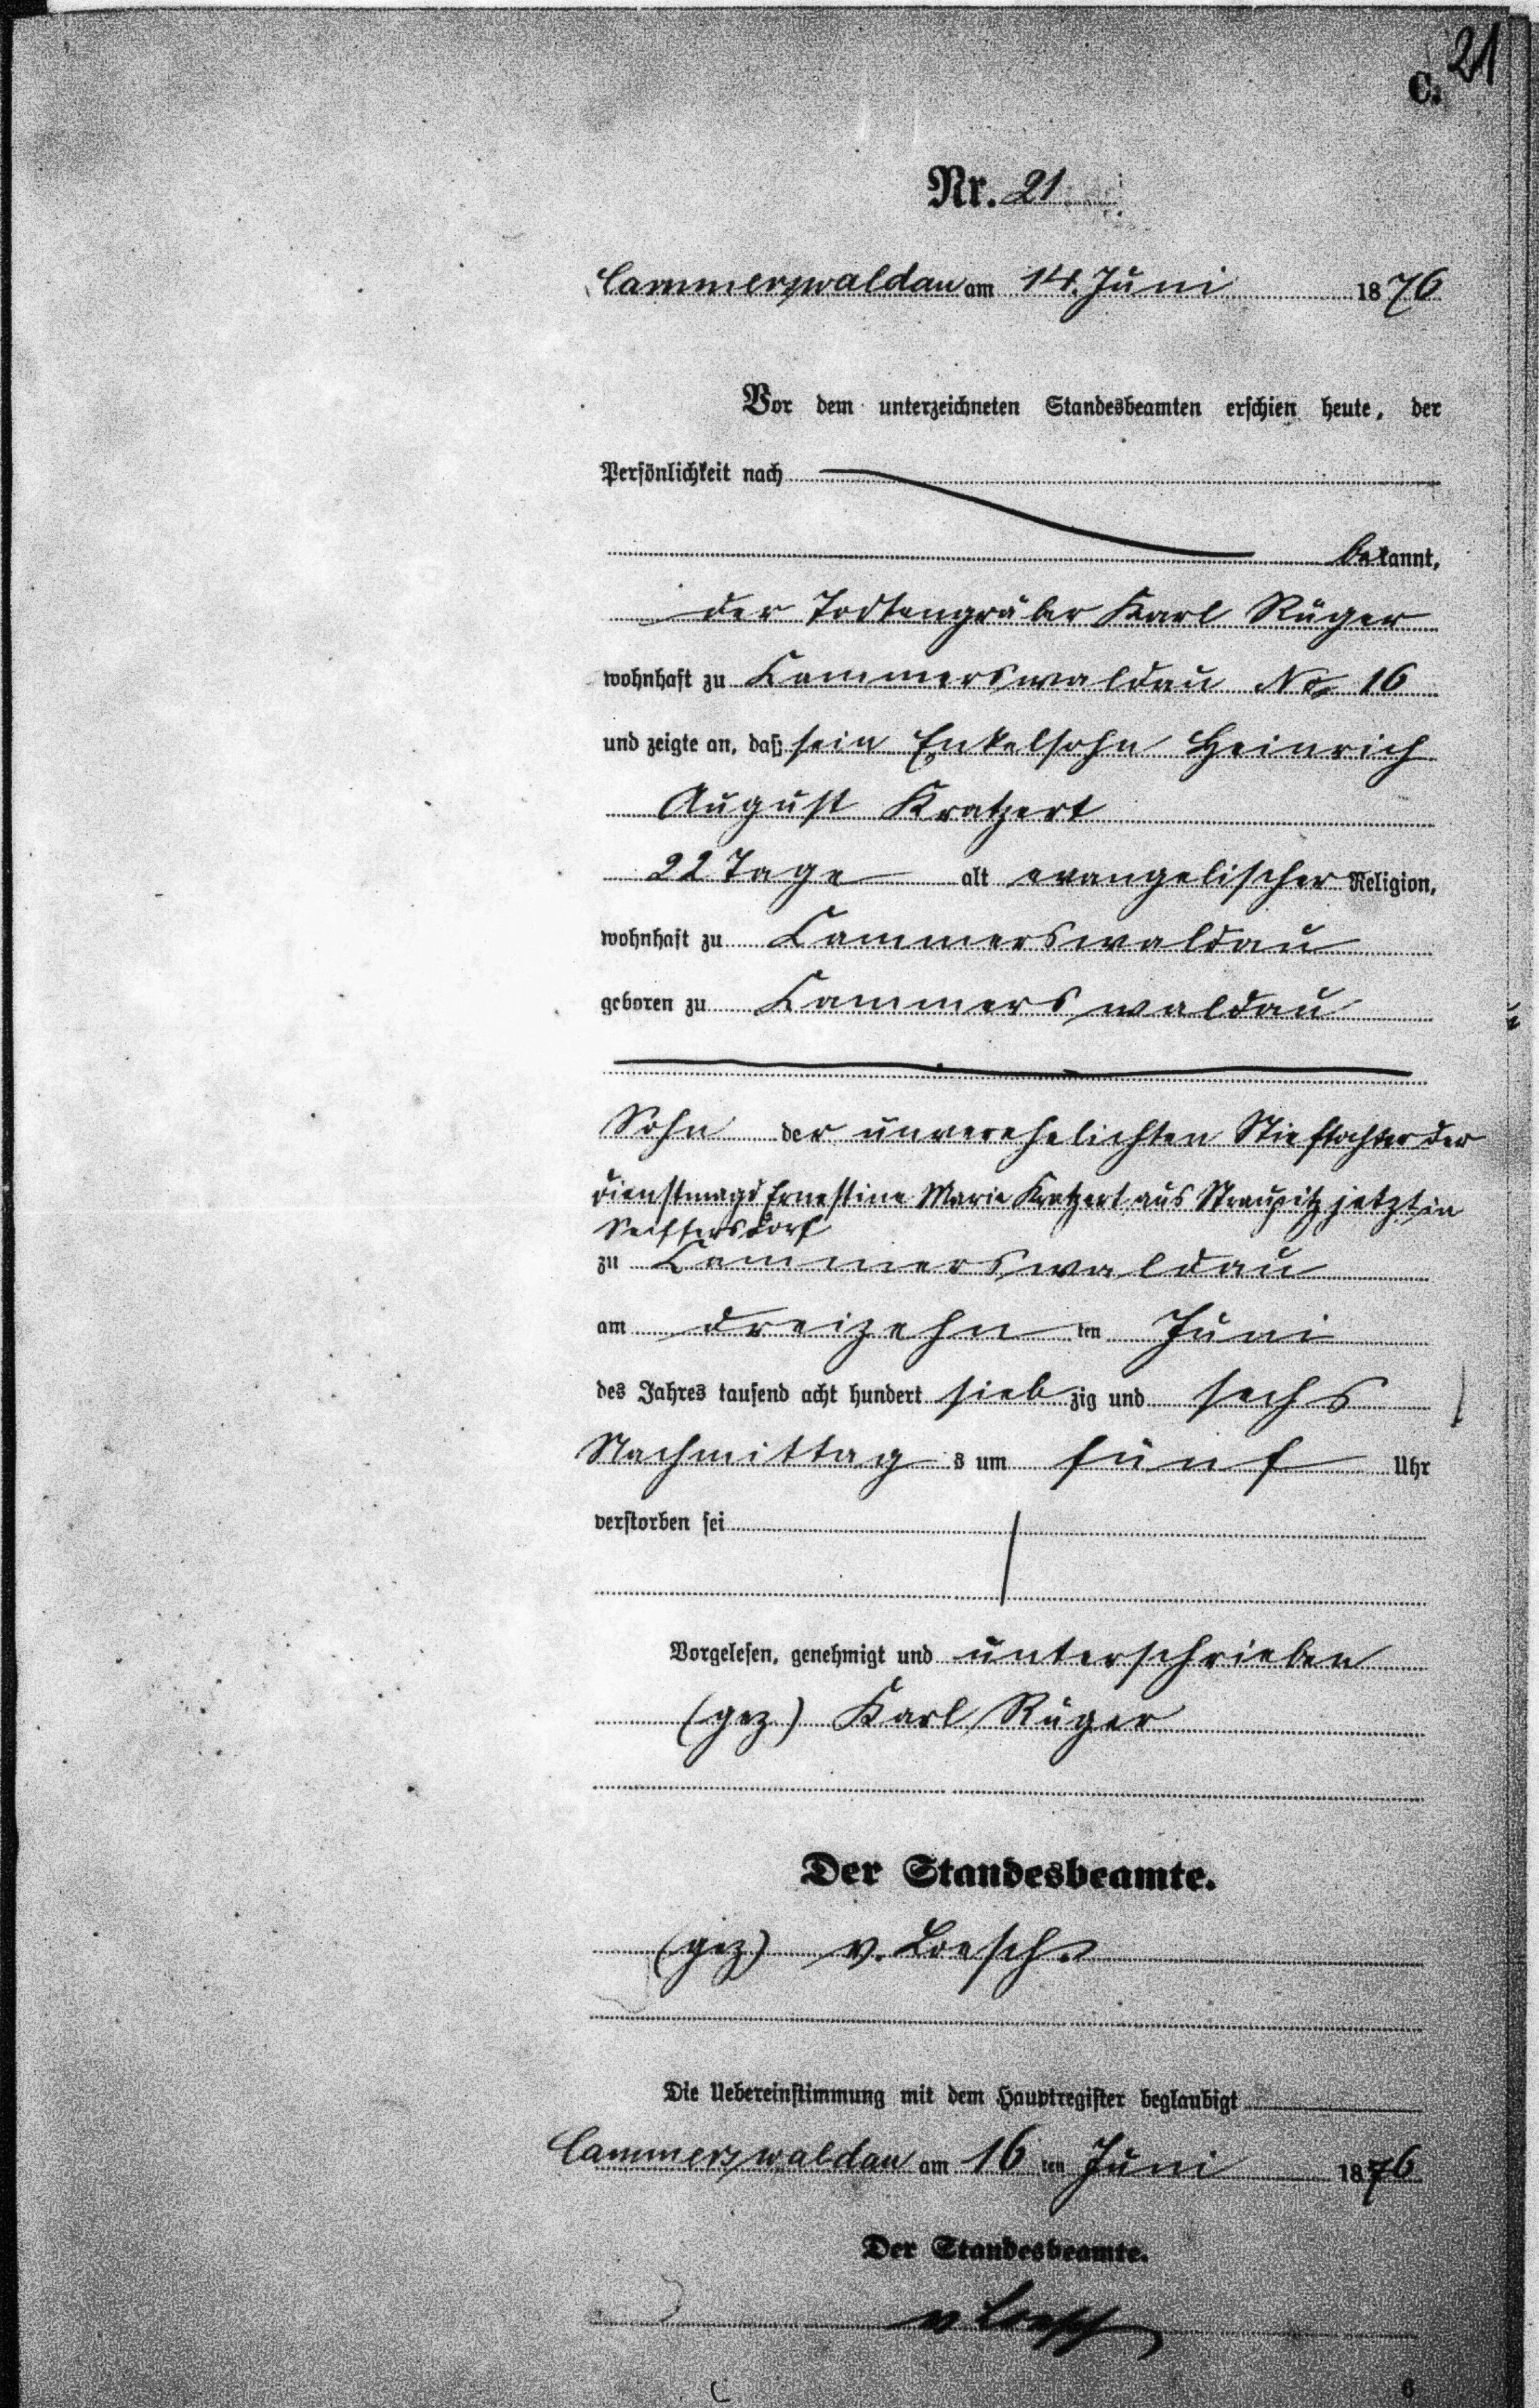 21
C.
Nr. 21
Cammerswaldau am 14. Juni 1876
Vor dem unterzeichneten Standesbeamten erschien heute, der
Persönlichkeit nach
bekannt,
der Todtengräber Karl Rüger
wohnhaft zu Cammerswaldau No 16
und zeigte an, daß sein Enkelsohn Heinrich
August Kratzert
22 Tage alt evangelischer Religion,
wohnhaft zu Cammerswaldau
geboren zu Cammerswaldau
Sohn der unverehelichten Stieftochter der
Dienstmagd Ernestine Marie Kratzert aus Straupitz jetzt in
Seiffersdorf
zu Cammerswaldau
am dreizehn ten Juni
des Jahres tausend acht hundert siebzig und sechs
Nachmittags um fünf Uhr
verstorben sei
Vorgelesen, genehmigt und unterschrieben
(gez) Karl Rüger
Der Standesbeamte.
(gez) v. Loesch.
Die Uebereinstimmung mit dem Hauptregister beglaubigt
Cammerswaldau am 16 ten Juni 1876
Der Standesbeamte.
v Loesch
6